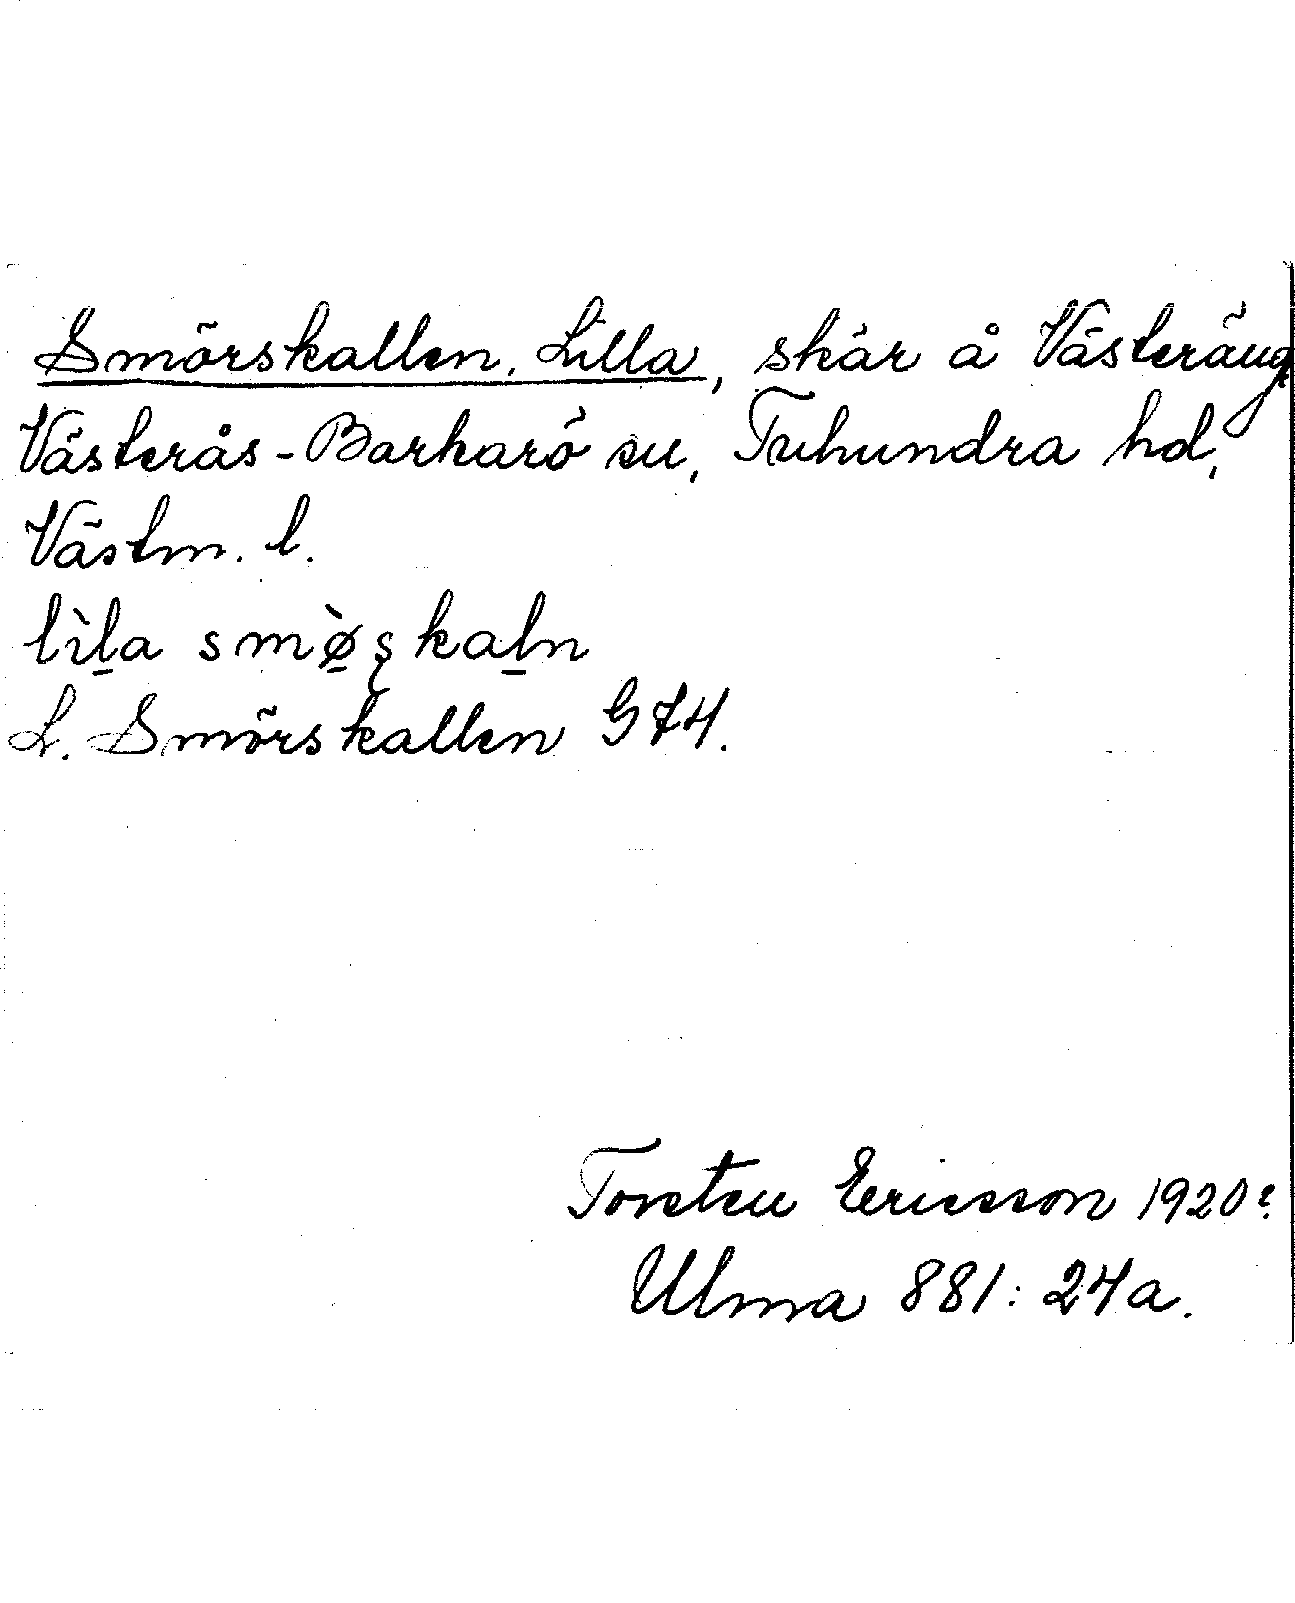 Smörskallen, Lilla, skär å Västeräng,
Västerås-Barkarö sn, Tuhundra hd,
Västm. l.
lìl̠a smø̠̀ʂkal̠n
L. Smörskallen G74.
Torsten Ericsson 1920?
Ulma 881:24a.